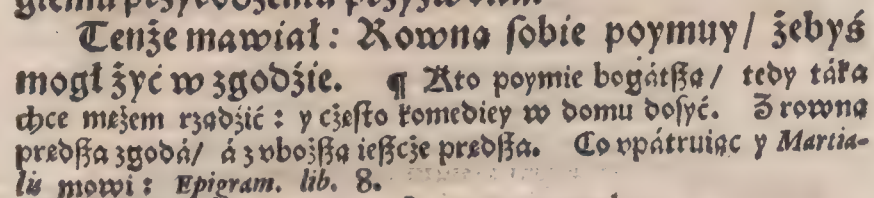 Tenże mawiał: Rowną sobie poymuy/ żebyś
mogł żyć w zgodźie. ¶ Kto poymie bogátſzą/ tedy táka
chce mężem rządźić: y cżęſto komediey w domu doſyć. Z rowną
prędſza zgodá/ á z vbożſzą ieſzcże prędſza. Co vpátruiąc y Martia-
lis mowi: Epigram. lib. 8.